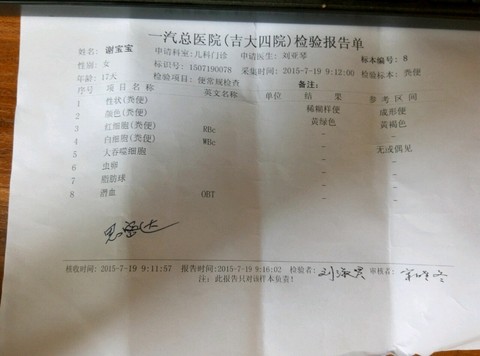 一汽总医院(吉大四院)检验报告单
姓名: 谢宝宝 申请科室:儿科门诊 申请医生: 刘亚琴 标本编号: 8
性别: 女 标识号: 1507190078 采集时间: 2015-7-19 9:12:00 检验标本: 粪便
年龄: 17天 检验项目: 便常规检查 备注:
序号 项目名称 英文名称 单位 结果 参考区间
1 性状(粪便) 稀糊样便 成形便
2 颜色(粪便) 黄绿色 黄褐色
3 红细胞(粪便) RBc - -
4 白细胞(粪便) WBc - -
5 大吞噬细胞 - 无或偶见
6 虫卵 - -
7 脂肪球 - -
8 潜血 OBT - -
接收时间: 2015-7-19 9:11:57 报告时间:2015-7-19 9:16:02 检验者: 审核者:
注: 此报告只对该样本负责!